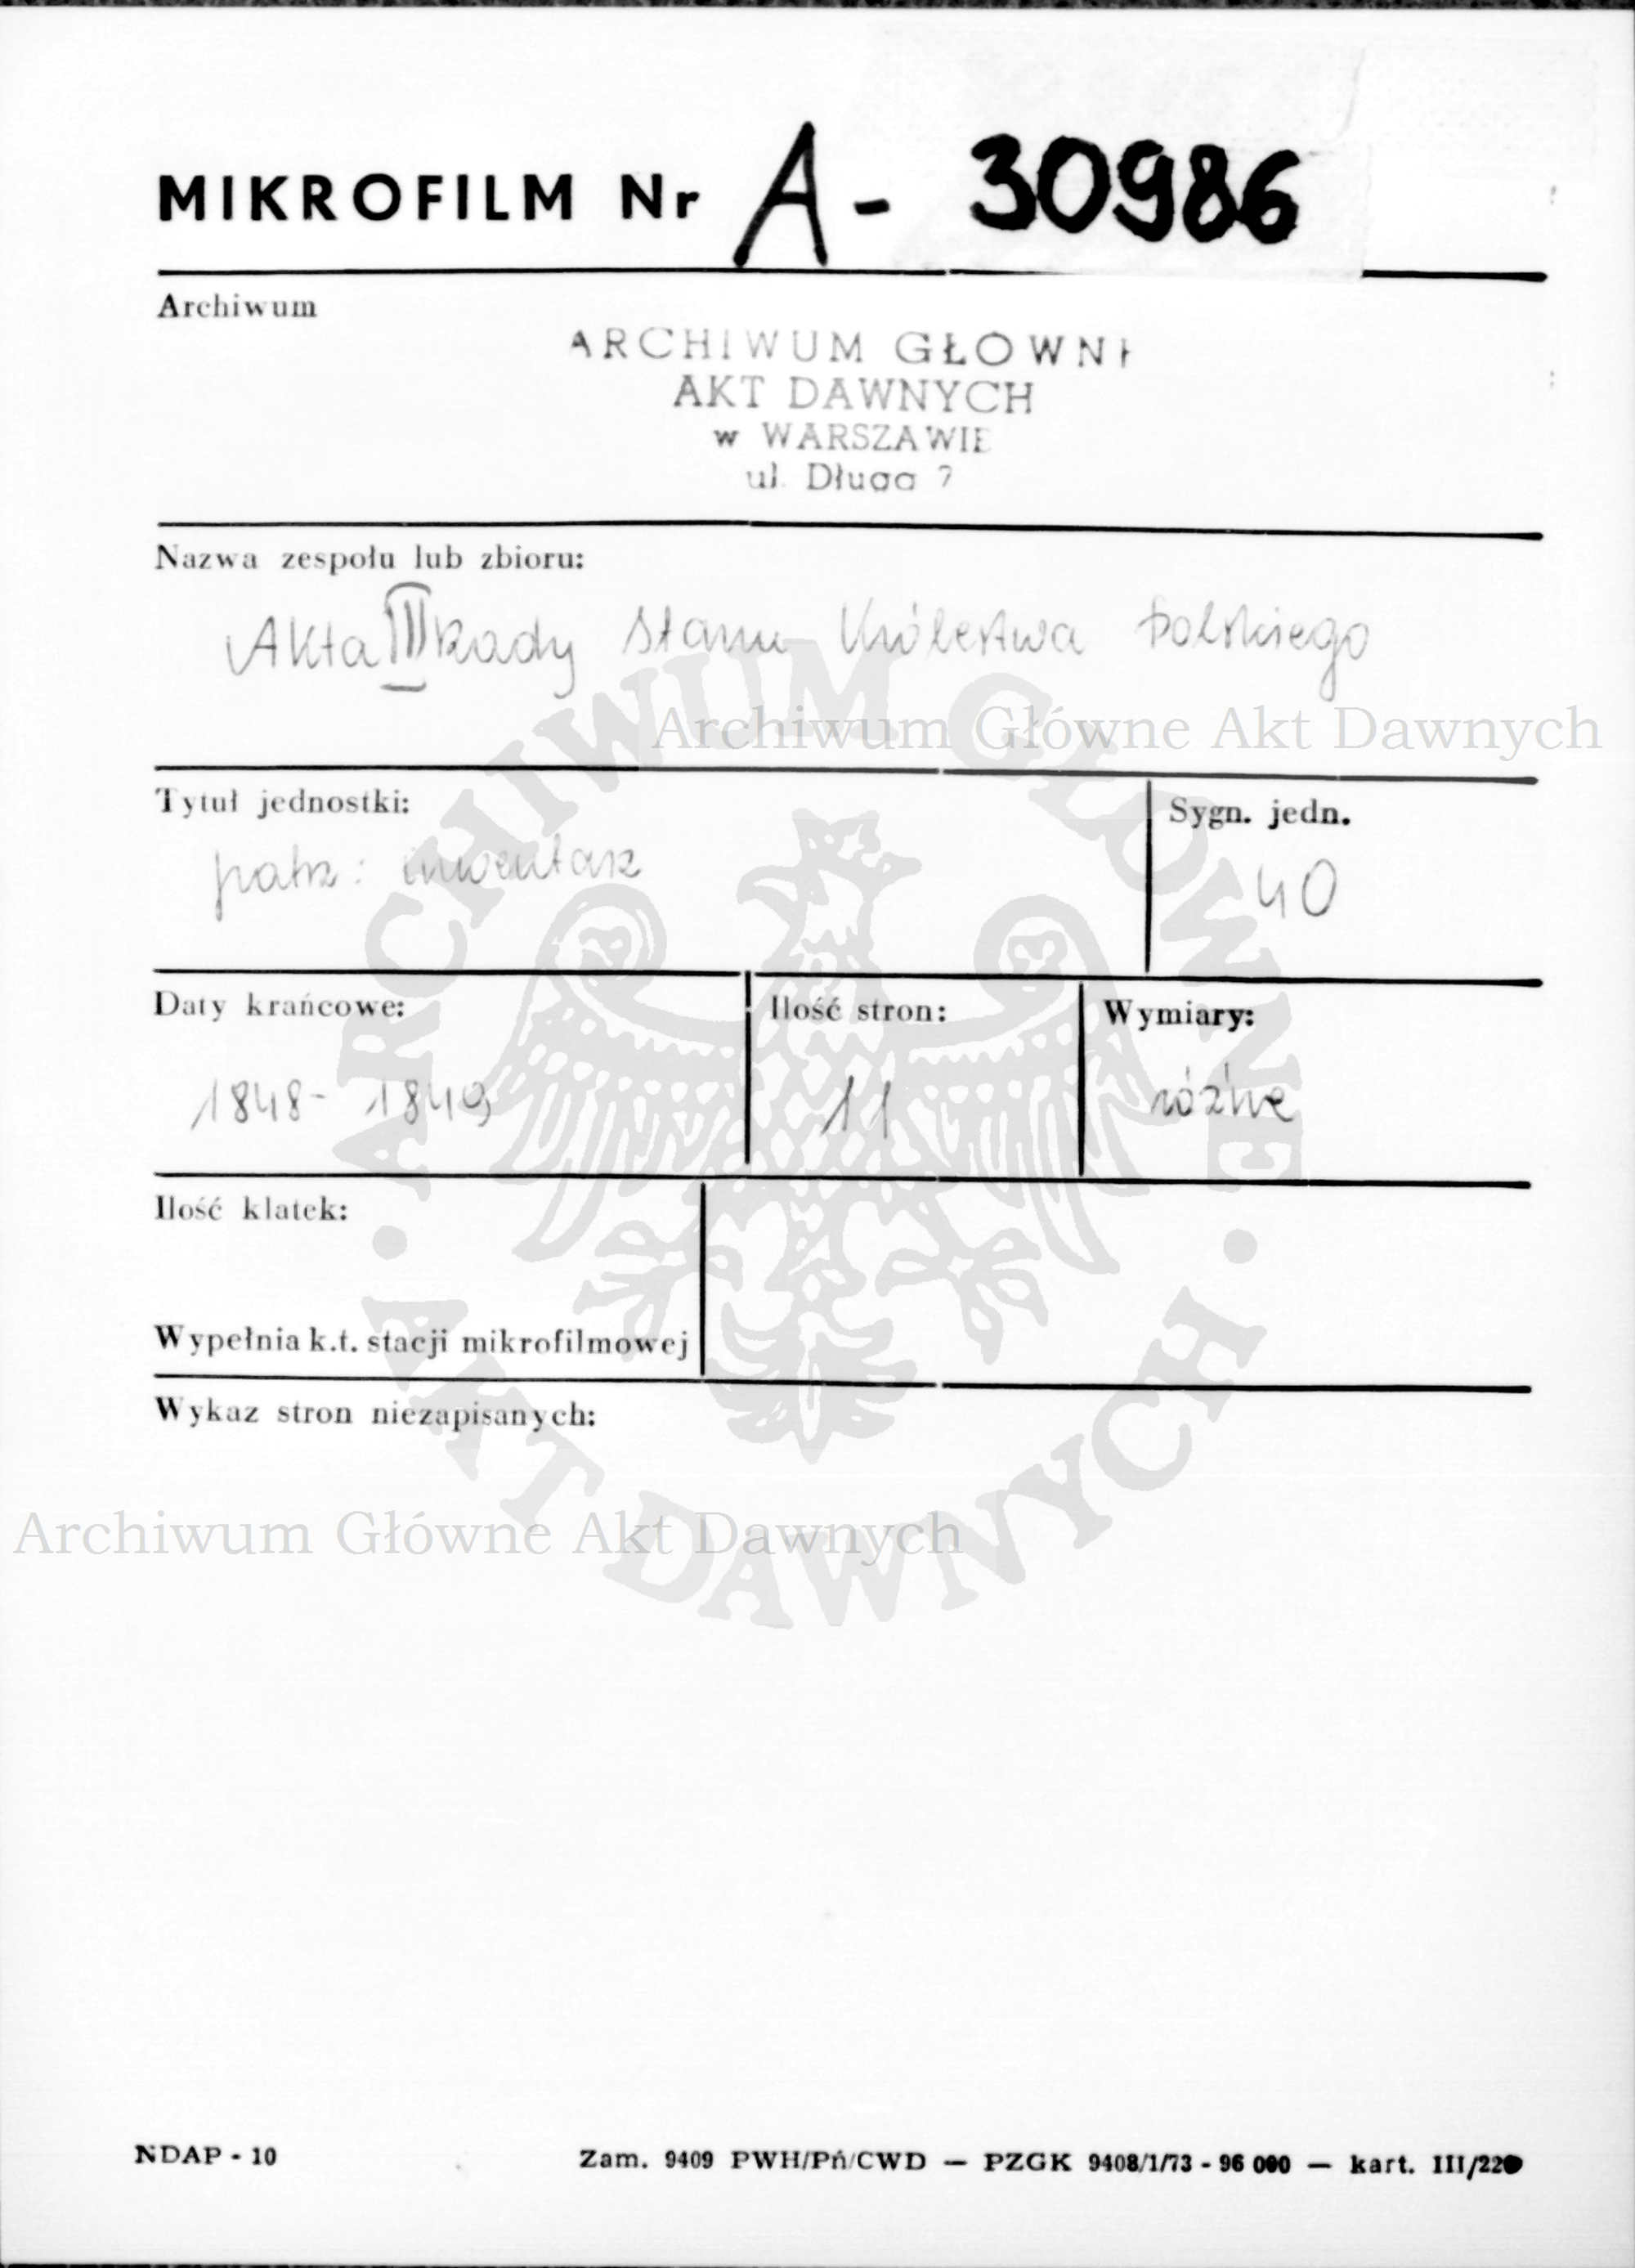 MIKROFILM Nr A - 30986
Archiwum
ARCHIWUM GŁÓWNE
AKT DAWNYCH
w WARSZAWIE
ul. Długa 7
Nazwa zespołu lub zbioru:
Akta III Rady Stanu Królestwa Polskiego
Archiwum Główne Akt Dawnych
Tytuł jednostki:
Sygn. jedn.
patrz: inwentarz
40
Daty krańcowe:
Ilość stron:
Wymiary:
1848 - 1849
11
różne
Ilość klatek:
Wypełnia k.t. stacji mikrofilmowej
Wykaz stron niezapisanych:
Archiwum Główne Akt Dawnych
ARCHIWUM GŁÓWNE · AKT DAWNYCH ·
NDAP - 10
Zam. 9409 PWH/Pń/CWD — PZGK 9408/1/73 - 96 000 — kart. III/220